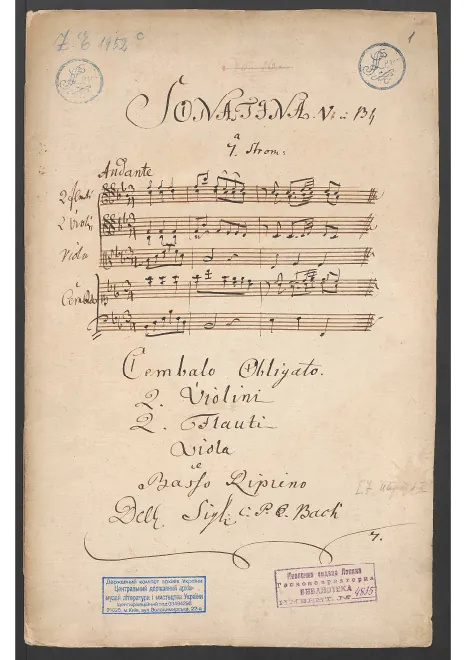 Z. C 1952
1
SONATINA. No: 134
a
7. Strom:
Andante
2 flauti
2 Violi
Viola
e
Cembalo
Cembalo Obligato.
2. Violini
2. Flauti
Viola
e
Basso Ripieno
Dell Sigl: C. P. E. Bach
7.
Державний комітет архівів України
Центральний державний архів-
музей літератури і мистецтва України
01025, м. Київ, вул. Володимирська, 22-а
БИБЛИОТЕКА
4835